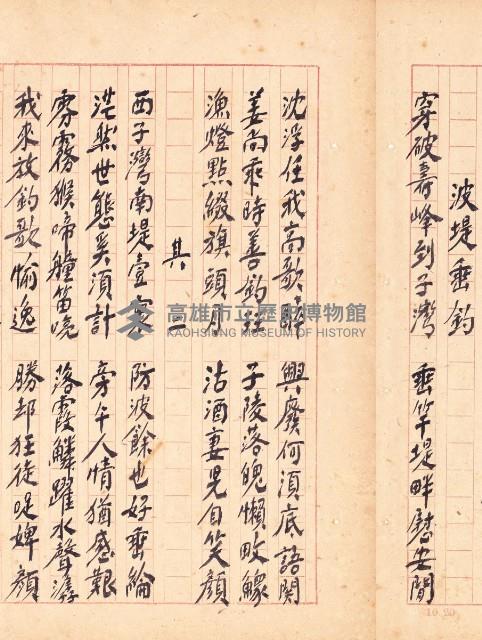 波堤垂釣
穿破壽峰到子灣 垂竿堤畔慰安閒
沈浮任我高歌 興廢何須底語関
姜尚乘時善釣 子陵落魄懶畋鰥
漁燈點綴旗頭月 沽酒妻児自笑顔
其二
西子灣南堤壹 防波餘也好垂綸
茫然世態奚須計 旁午人情猶感艱
雰霧猴啼艫笛 落霞鱗躍水聲潺
我來放釣歌愉逸 勝却狂徒婢顔
高雄市立歷史博物館
KAOHSIUNG MUSEUM OF HISTORY
10 20